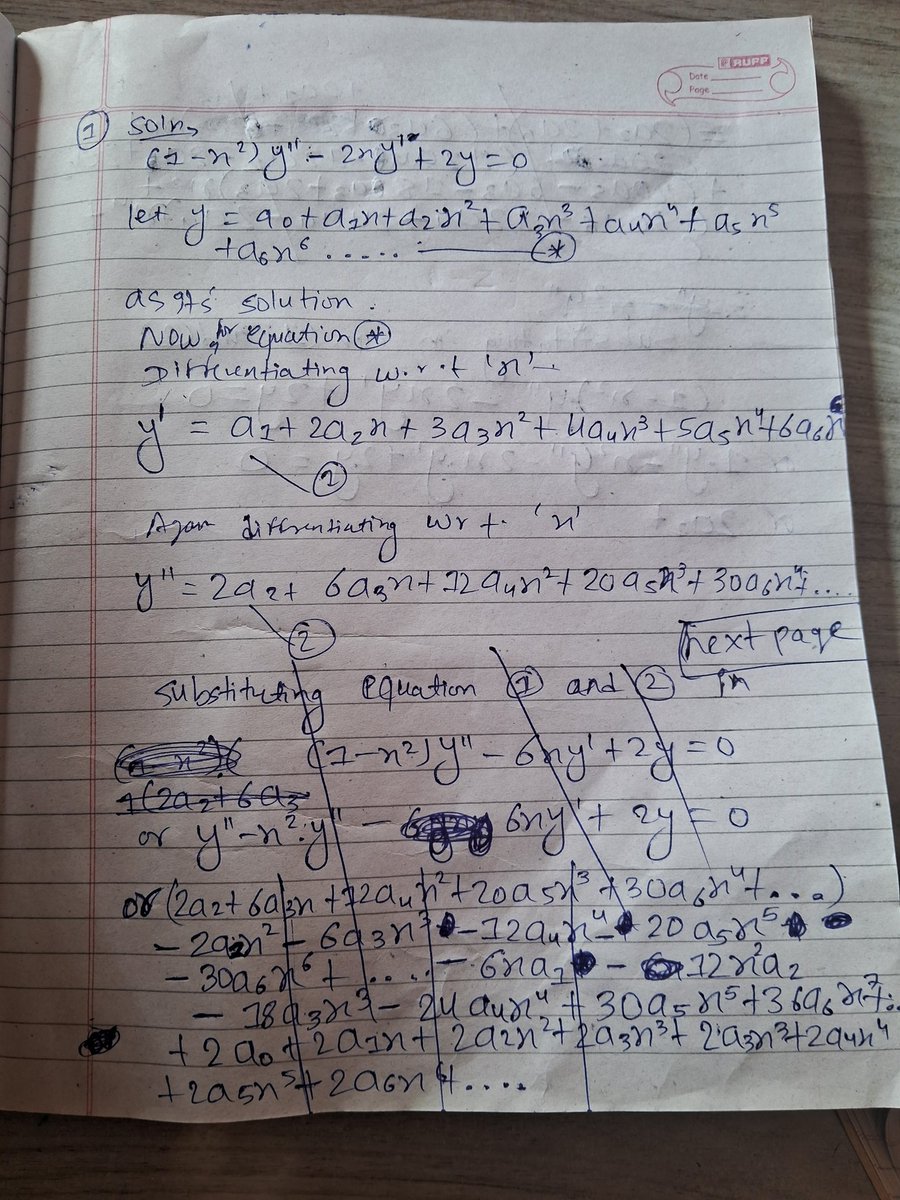 RUPP
Date
Page
① Soln,
(1-x²)y'' - 2xy' + 2y = 0
let y = a₀ + a₁x + a₂x² + a₃x³ + a₄x⁴ + a₅x⁵
+ a₆x⁶ ..... ——— (*)
as its solution.
Now, for equation (*)
Differentiating w.r.t 'x' -
y' = a₁ + 2a₂x + 3a₃x² + 4a₄x³ + 5a₅x⁴ + 6a₆x
②
Again differentiating wrt. 'x'
y'' = 2a₂ + 6a₃x + 12a₄x² + 20a₅x³ + 30a₆x⁴ + ....
②
next page
substituting equation ① and ② in
(1-x²)y'' - 6xy' + 2y = 0
1(2a₂ + 6a₃
or y'' - x².y'' - 6xy' + 2y = 0
or (2a₂ + 6a₃x + 12a₄x² + 20a₅x³ + 30a₆x⁴ + ...)
- 2a₂x² - 6a₃x³ - 12a₄x⁴ - 20a₅x⁵
- 30a₆x⁶ + ..... - 6xa₁ - 12x²a₂
- 18a₃x³ - 24a₄x⁴ + 30a₅x⁵ + 36a₆x⁷ + ..
+ 2a₀ + 2a₁x + 2a₂x² + 2a₃x³ + 2a₃x³ + 2a₄x⁴
+ 2a₅x⁵ + 2a₆x⁶ + ....